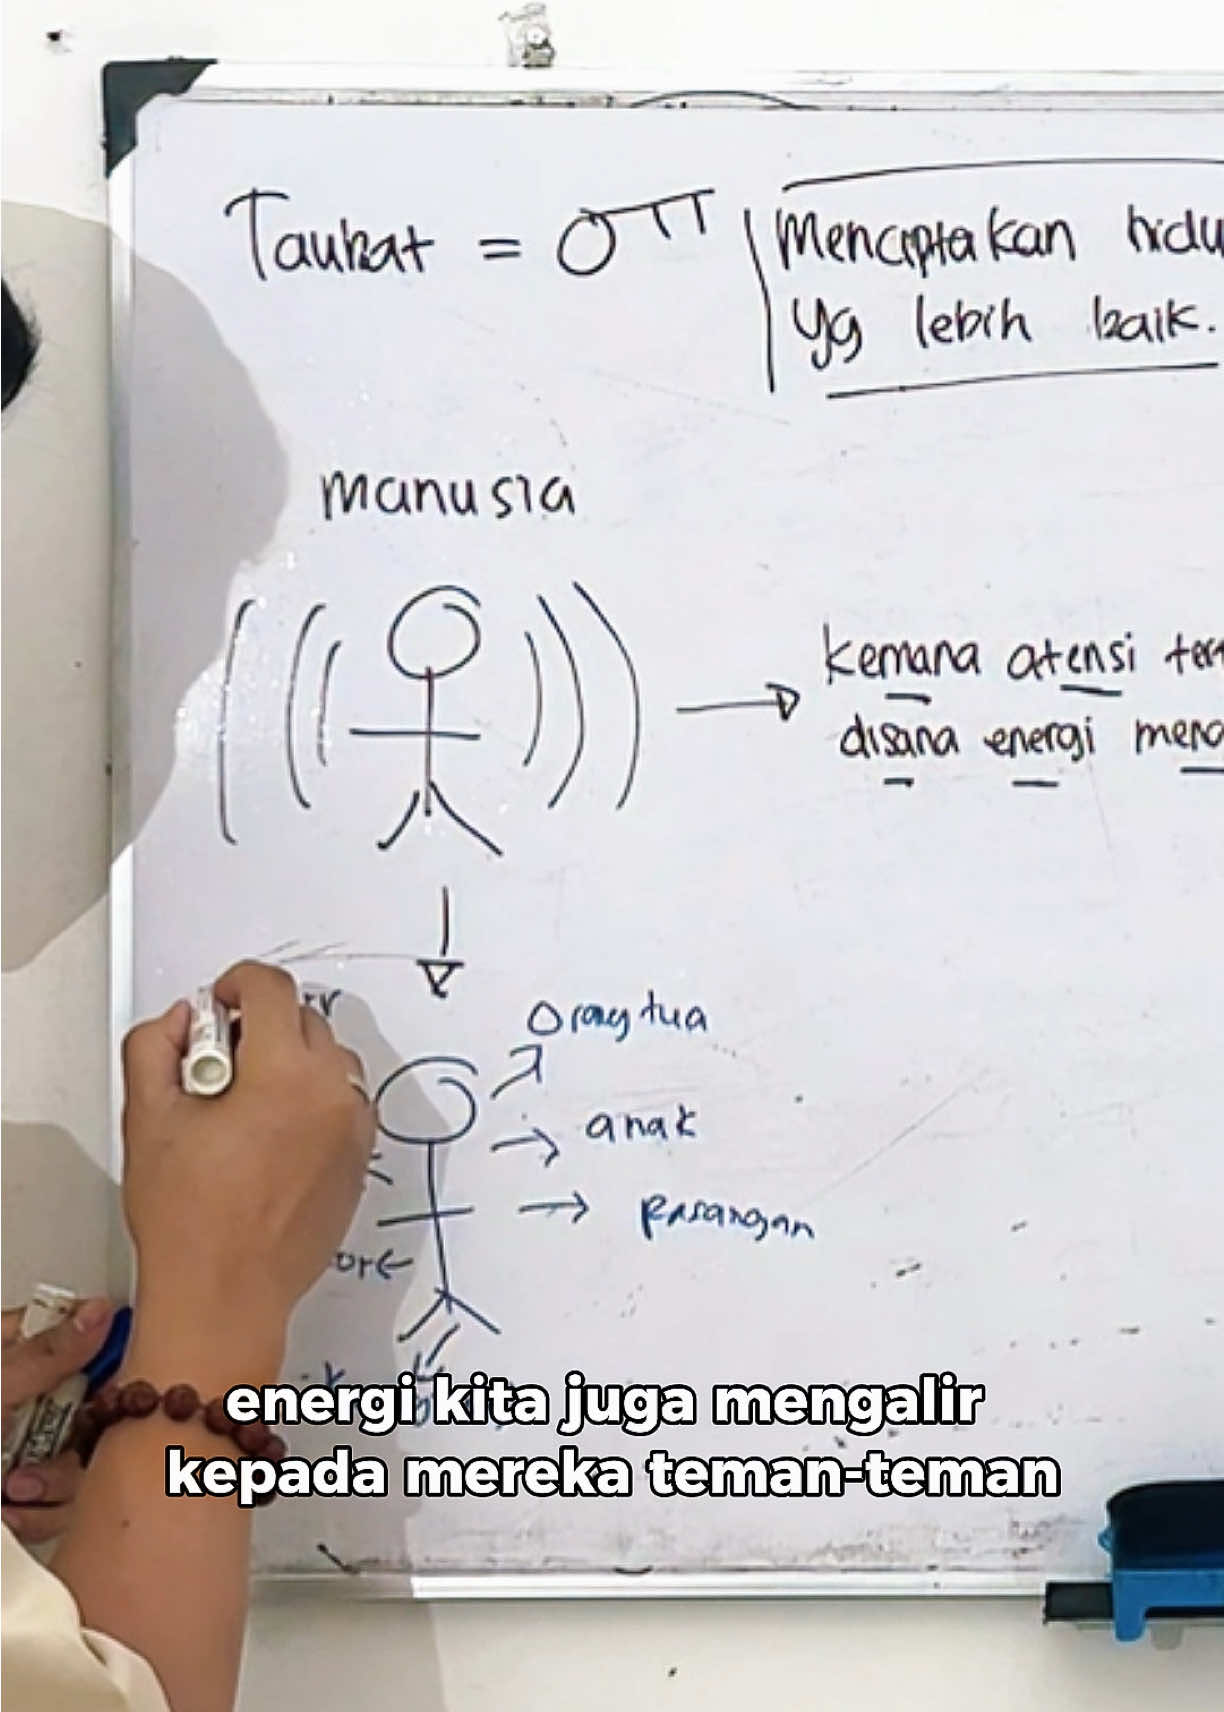 Taubat =
Menciptakan hidu
yg lebih baik.
manusia
kemana atensi ter
disana energi meng
Orang tua
anak
Pasangan
energi kita juga mengalir
kepada mereka teman-teman